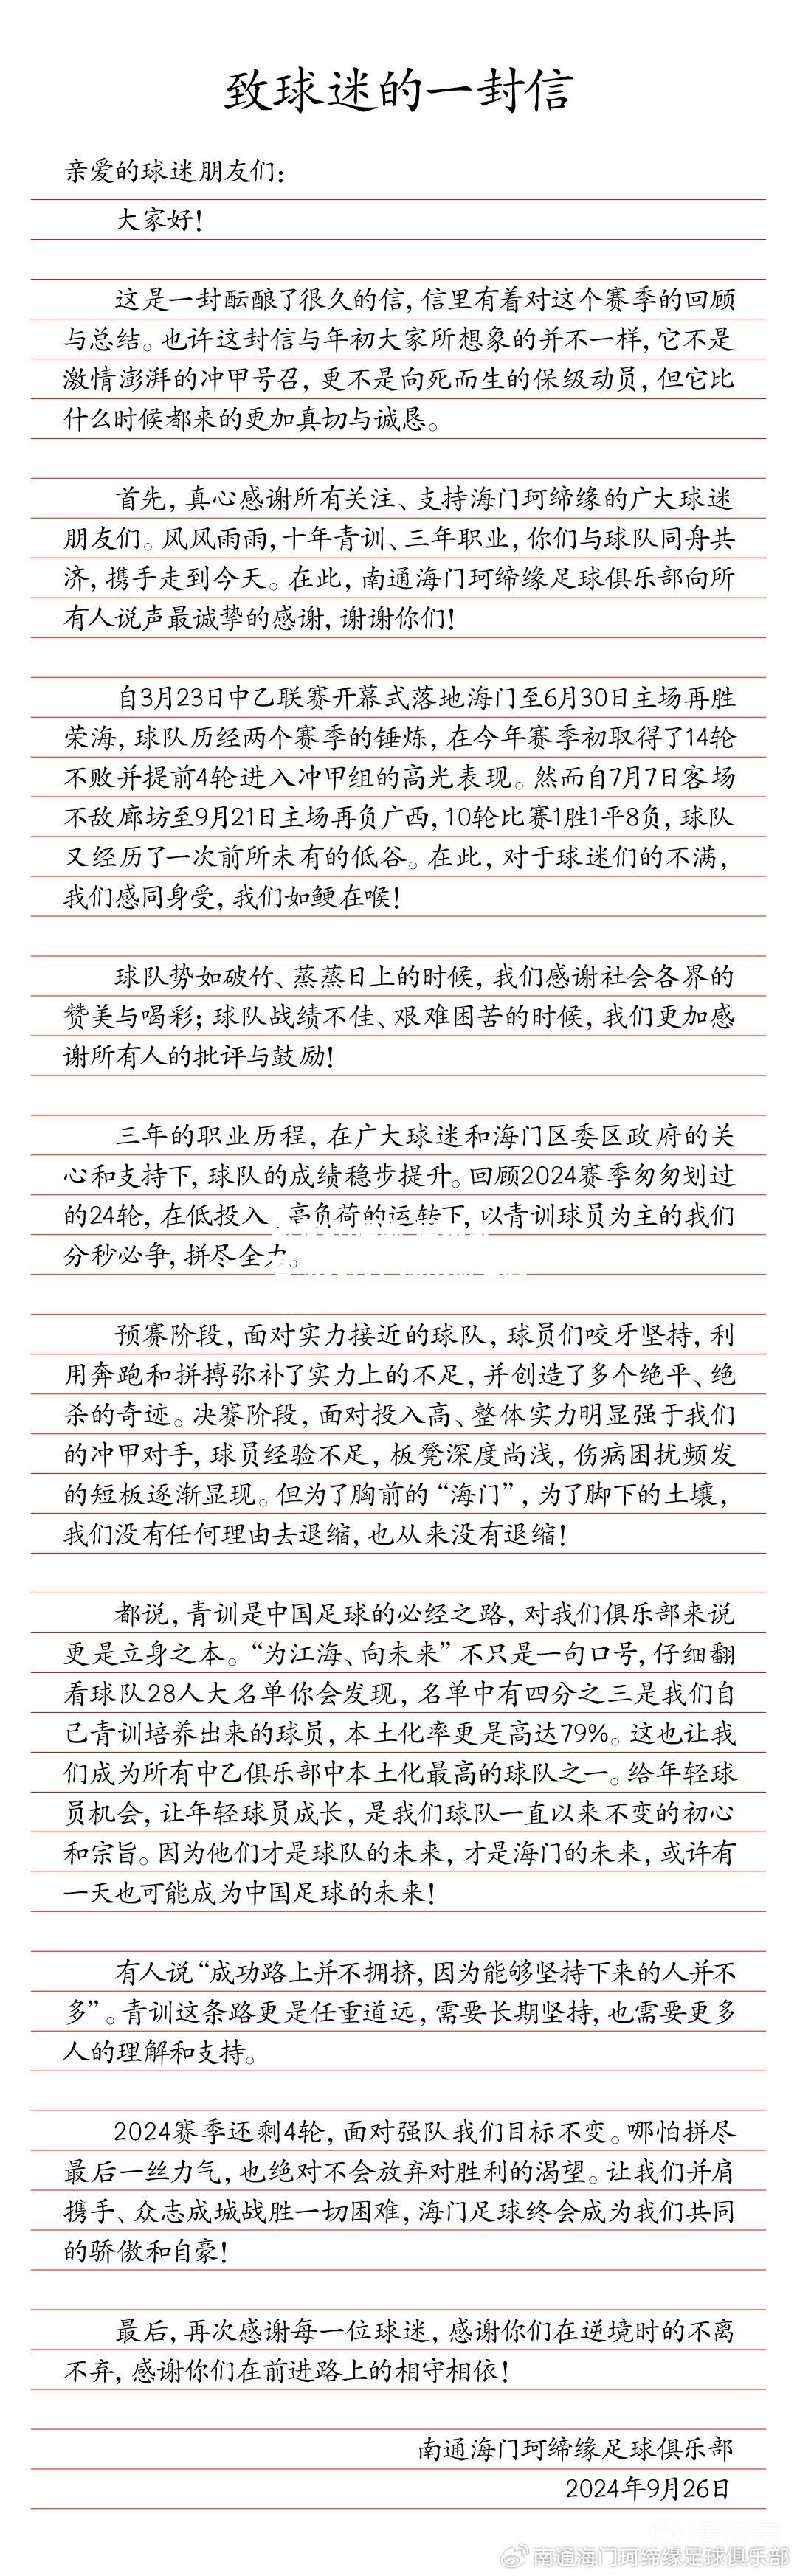 致球迷的一封信
亲爱的球迷朋友们：
大家好！
这是一封酝酿了很久的信，信里有着对这个赛季的回顾
与总结。也许这封信与年初大家所想象的并不一样，它不是
激情澎湃的冲甲号召，更不是向死而生的保级动员，但它比
什么时候都来的更加真切与诚恳。
首先，真心感谢所有关注、支持海门珂缔缘的广大球迷
朋友们。风风雨雨，十年青训、三年职业，你们与球队同舟共
济，携手走到今天。在此，南通海门珂缔缘足球俱乐部向所
有人说声最诚挚的感谢，谢谢你们！
自3月23日中乙联赛开幕式落地海门至6月30日主场再胜
荣海，球队历经两个赛季的锤炼，在今年赛季初取得了14轮
不败并提前4轮进入冲甲组的高光表现。然而自7月7日客场
不敌廊坊至9月21日主场再负广西，10轮比赛1胜1平8负，球队
又经历了一次前所未有的低谷。在此，对于球迷们的不满，
我们感同身受，我们如鲠在喉！
球队势如破竹、蒸蒸日上的时候，我们感谢社会各界的
赞美与喝彩；球队战绩不佳、艰难困苦的时候，我们更加感
谢所有人的批评与鼓励！
三年的职业历程，在广大球迷和海门区委区政府的关
心和支持下，球队的成绩稳步提升。回顾2024赛季匆匆划过
的24轮，在低投入、高负荷的运转下，以青训球员为主的我们
分秒必争，拼尽全力。
预赛阶段，面对实力接近的球队，球员们咬牙坚持，利
用奔跑和拼搏弥补了实力上的不足，并创造了多个绝平、绝
杀的奇迹。决赛阶段，面对投入高、整体实力明显强于我们
的冲甲对手，球员经验不足，板凳深度尚浅，伤病困扰频发
的短板逐渐显现。但为了胸前的“海门”，为了脚下的土壤，
我们没有任何理由去退缩，也从来没有退缩！
都说，青训是中国足球的必经之路，对我们俱乐部来说
更是立身之本。“为江海、向未来”不只是一句口号，仔细翻
看球队28人大名单你会发现，名单中有四分之三是我们自
己青训培养出来的球员，本土化率更是高达79%。这也让我
们成为所有中乙俱乐部中本土化最高的球队之一。给年轻球
员机会，让年轻球员成长，是我们球队一直以来不变的初心
和宗旨。因为他们才是球队的未来，才是海门的未来，或许有
一天也可能成为中国足球的未来！
有人说“成功路上并不拥挤，因为能够坚持下来的人并不
多”。青训这条路更是任重道远，需要长期坚持，也需要更多
人的理解和支持。
2024赛季还剩4轮，面对强队我们目标不变。哪怕拼尽
最后一丝力气，也绝对不会放弃对胜利的渴望。让我们并肩
携手、众志成城战胜一切困难，海门足球终会成为我们共同
的骄傲和自豪！
最后，再次感谢每一位球迷，感谢你们在逆境时的不离
不弃，感谢你们在前进路上的相守相依！
南通海门珂缔缘足球俱乐部
2024年9月26日
@南通海门珂缔缘足球俱乐部